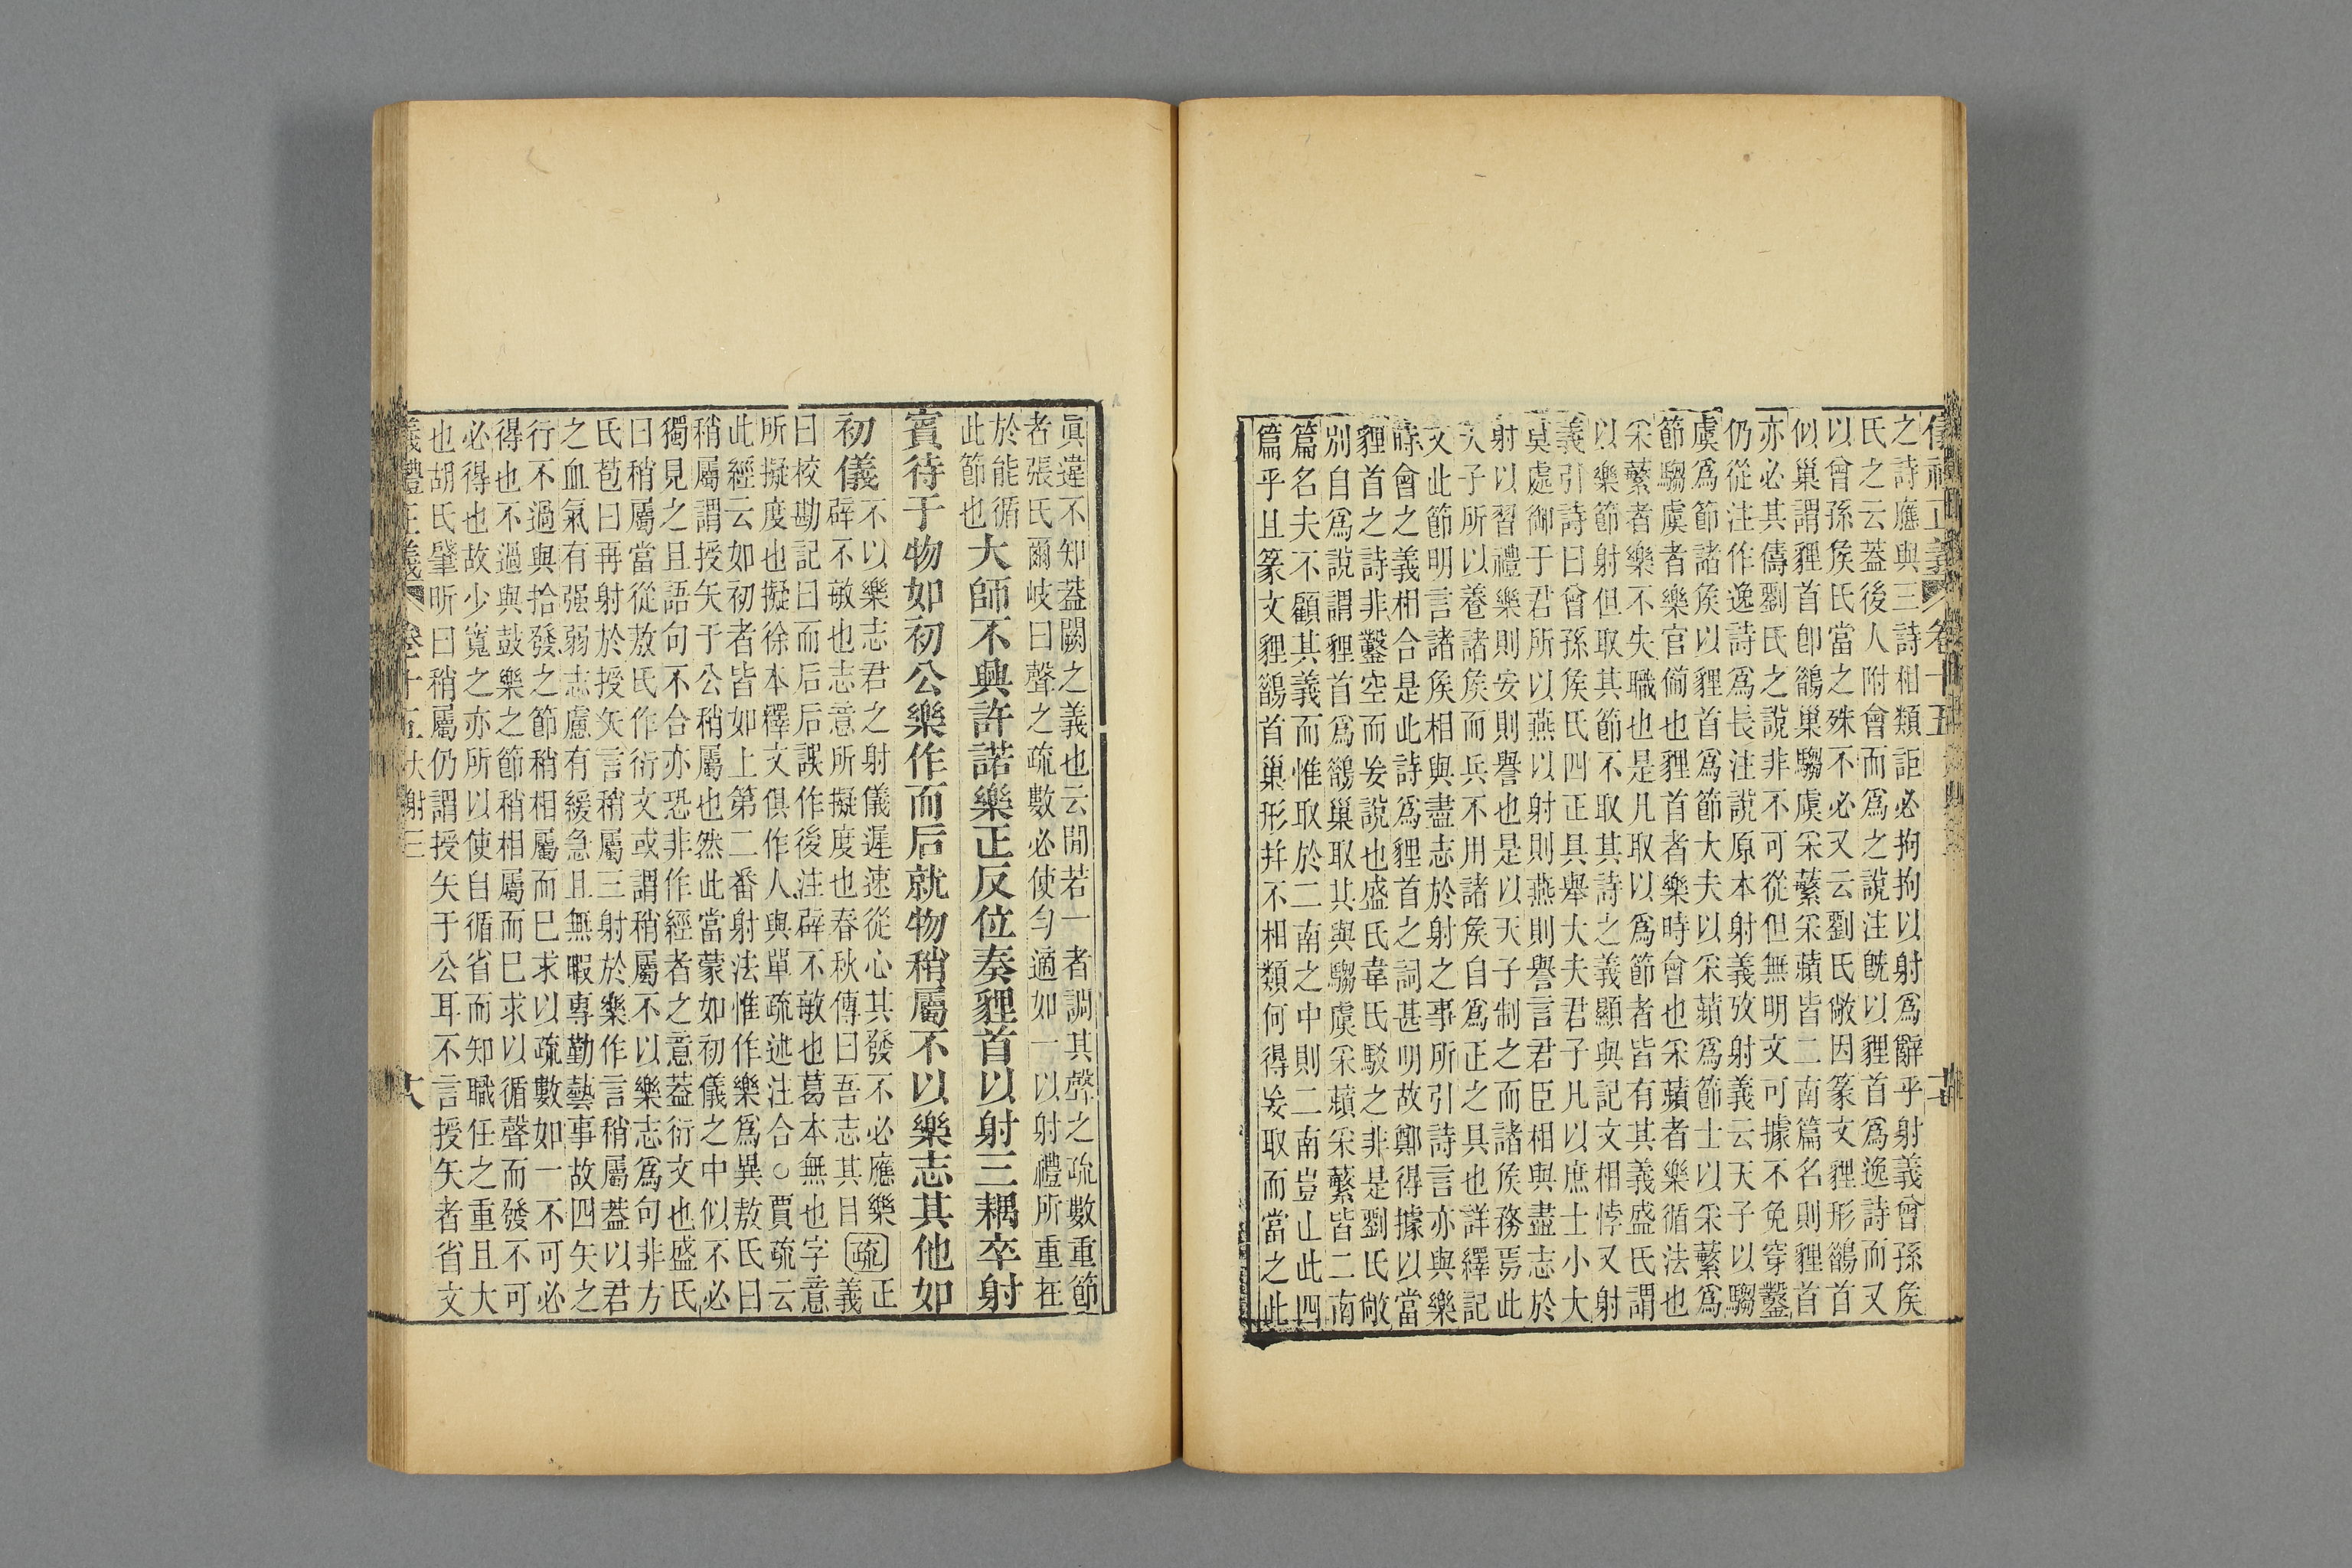 之詩應與三詩相類詎必拘拘以射爲辭乎射義曾孫矦
氏之云葢後人附會而爲之說注旣以貍首爲逸詩而又
以曾孫矦氏當之殊不必又云劉氏敞因篆文貍形鶴首
似巢謂貍首卽鵲巢騶虞采蘩采蘋皆二南篇名則貍首
亦必其儔劉氏之說非不可從但無明文可據不免穿鑿
仍從注作逸詩爲長注說原本射義攷射義云天子以騶
虞爲節諸矦以貍首爲節大夫以采蘋爲節士以采蘩爲
節騶虞者樂官備也貍首者樂時會也采蘋者樂循法也
采蘩者樂不失職也是凡取以爲節者皆有其義盛氏謂
以樂節射但取其節不取其詩之義顯與記文相悖又射
義引詩曰曾孫矦氏四正具舉大夫君子凡以庶士小大
莫處御于君所以燕以射則燕則譽言君臣相與盡志於
射以習禮樂則安則譽也是以天子制之而諸矦務焉此
天子所以養諸矦而兵不用諸矦自爲正之具也詳繹記
文此節明言諸矦相與盡志於射之事所引詩言亦與樂
時會之義相合是此詩爲貍首之詞甚明故鄭得據以當
貍首之詩非鑿空而妄說也盛氏韋氏駁之非是劉氏敞
別自爲說謂貍首爲鵲巢取其與騶虞采蘋采蘩皆二南
篇名夫不顧其義而惟取於二南之中則二南豈止此四
篇乎且篆文貍鵲首巢形并不相類何得妄取而當之此
眞違不知葢闕之義也云閒若一者調其聲之疏數重節
者張氏爾岐曰聲之疏數必使勻適如一以射禮所重在
於能循
此節也
大師不興許諾樂正反位奏貍首以射三耦卒射
賓待于物如初公樂作而后就物稍屬不以樂志其他如
初儀
不以樂志君之射儀遲速從心其發不必應樂
辟不敏也志意所擬度也春秋傳曰吾志其目
疏
正
義
曰校勘記曰而后后誤作後注辟不敏也葛本無也字意
所擬度也擬徐本釋文俱作人與單疏述注合○賈疏云
此經云如初者皆如上第二番射法惟作樂爲異敖氏曰
稍屬謂授矢于公稍屬也然此當蒙如初儀之中似不必
獨見之且語句不合亦恐非作經者之意葢衍文也盛氏
曰稍屬當從敖氏作衍文或謂稍屬不以樂志爲句非方
氏苞曰再射於授矢言稍屬三射於樂作言稍屬葢以君
之血氣有强弱志慮有緩急且無暇專勤藝事故四矢之
行不過與拾發之節稍相屬而巳求以疏數如一不可必
得也不過與鼓樂之節稍相屬而巳求以循聲而發不可
必得也故少寬之亦所以使自循省而知職任之重且大
也胡氏肇昕曰稍屬仍謂授矢于公耳不言授矢者省文